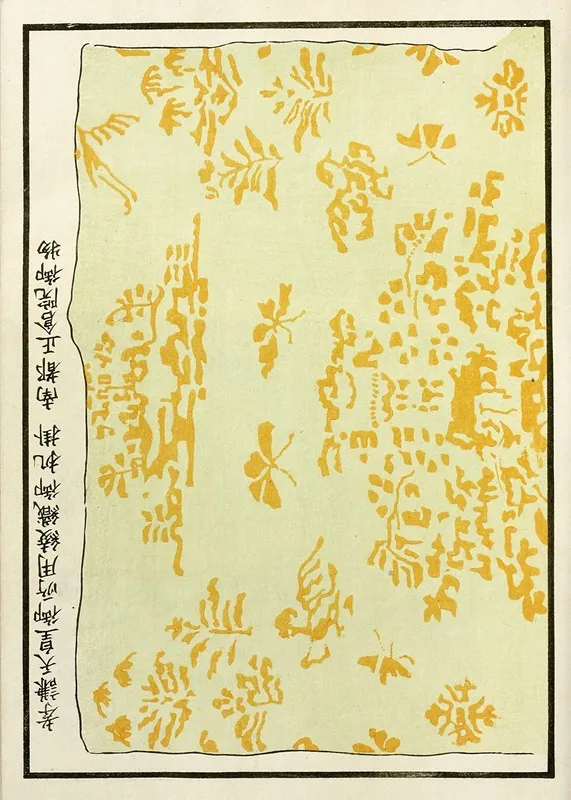 孝謙天皇御所用綾織御机掛 南都正倉院御物